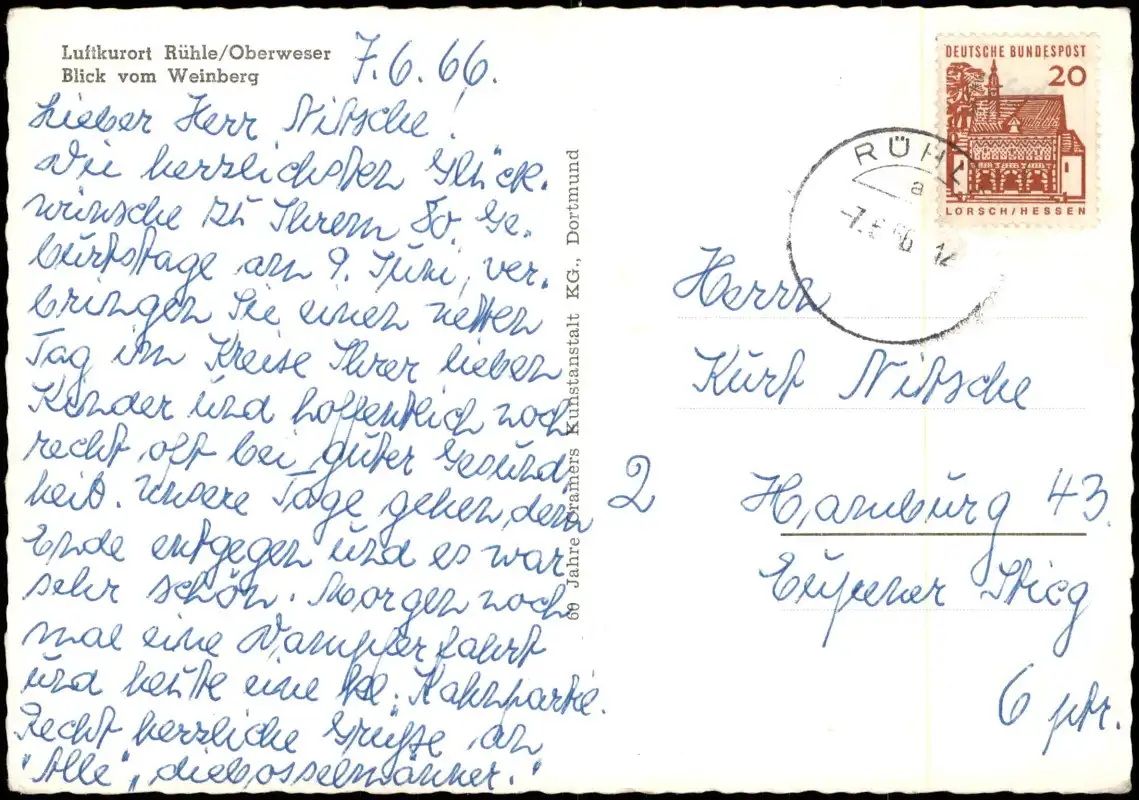 Luftkurort Rühle/Oberweser
Blick vom Weinberg
7.6.66.
Lieber Herr Nitsche!
Die herzlichsten Glück-
wünsche zu Ihrem 80. Ge-
burtstage am 9. Juni, ver-
bringen Sie einen netten
Tag im Kreise Ihrer lieben
Kinder und hoffentlich noch
recht oft bei guter Gesund-
heit. Unsere Tage gehen dem
Ende entgegen und es war
sehr schön. Morgen noch
mal eine Dampferfahrt
und heute eine kl. Kahnpartie.
Recht herzliche Grüße an
"Alle", die
60 Jahre Cramers Kunstanstalt KG., Dortmund
DEUTSCHE BUNDESPOST
20
LORSCH/HESSEN
RÜHL
a
-7.6.66 12
Herrn
Kurt Nitsche
2 Hamburg 43.
Eupener Stieg
6 ptr.